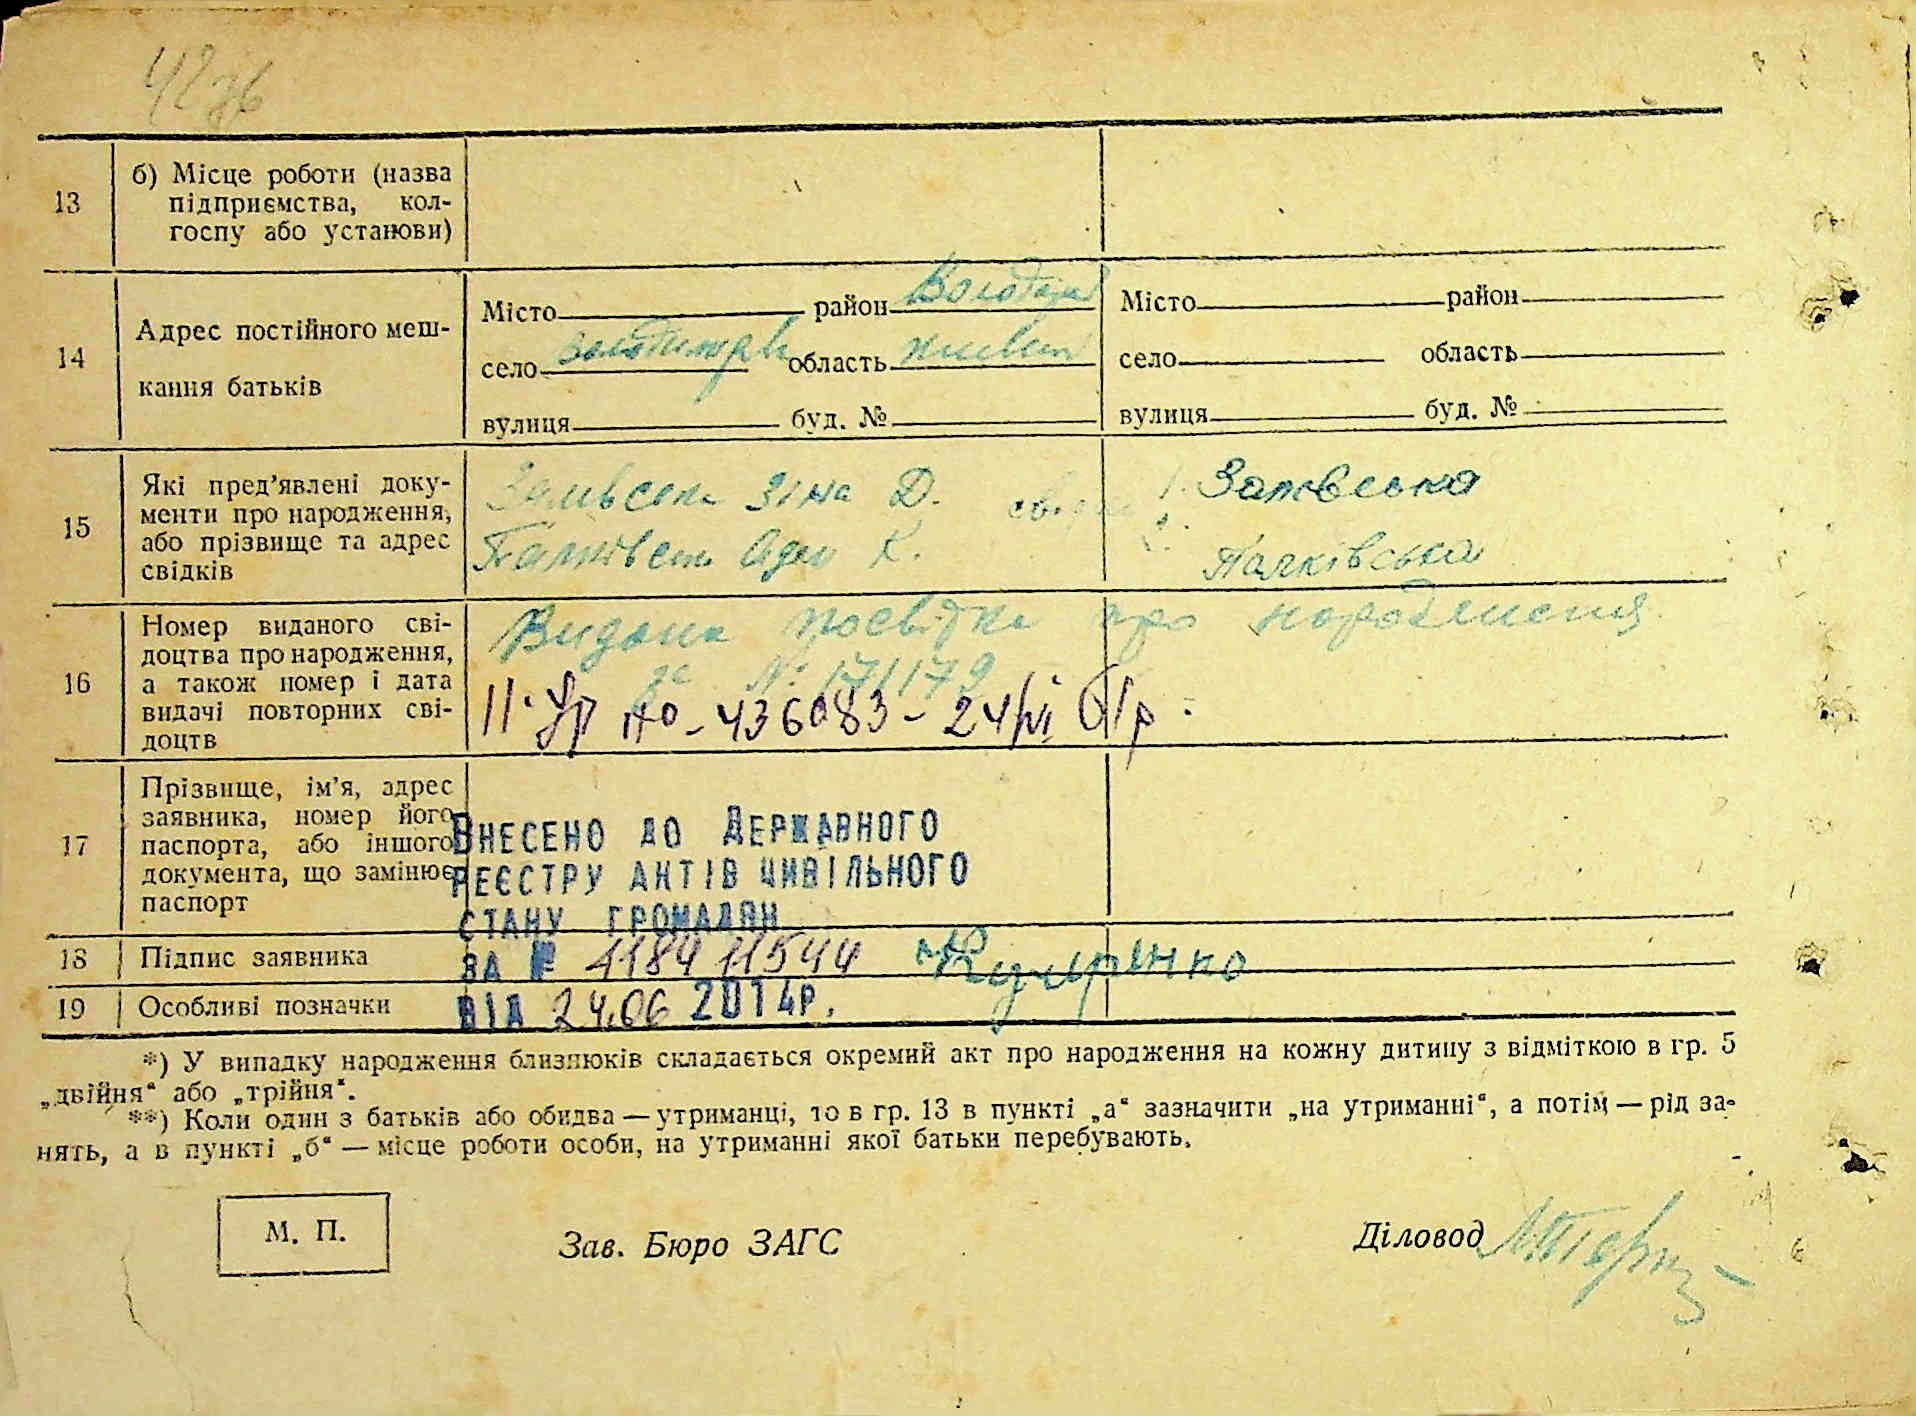 42 зв
13 б) Місце роботи (назва
підприємства, кол-
госпу або установи)
14 Адрес постійного меш-
кання батьків
Місто район Володар
село область Київськ
вулиця буд. №
Місто район
село область
вулиця буд. №
15 Які пред’явлені доку-
менти про народження,
або прізвище та адрес
свідків
Зіна Д.
К.
Залівська
Палківська
16 Номер виданого сві-
доцтва про народження,
а також номер і дата
видачі повторних сві-
доцтв
Видана посвідка про народження
№ 171179
436083 - 24/VI 61р.
17 Прізвище, ім’я, адрес
заявника, номер його
паспорта, або іншого
документа, що замінює
паспорт
Внесено до Державного
реєстру актів цивільного
стану громадян
за № 1184 11544
від 24.06 2014р.
18 Підпис заявника
19 Особливі позначки
*) У випадку народження близнюків складається окремий акт про народження на кожну дитину з відміткою в гр. 5
„двійня“ або „трійня“.
**) Коли один з батьків або обидва — утриманці, то в гр. 13 в пункті „а“ зазначити „на утриманні“, а потім — рід за-
нять, а в пункті „б“ — місце роботи особи, на утриманні якої батьки перебувають.
М. П.
Зав. Бюро ЗАГС
Діловод